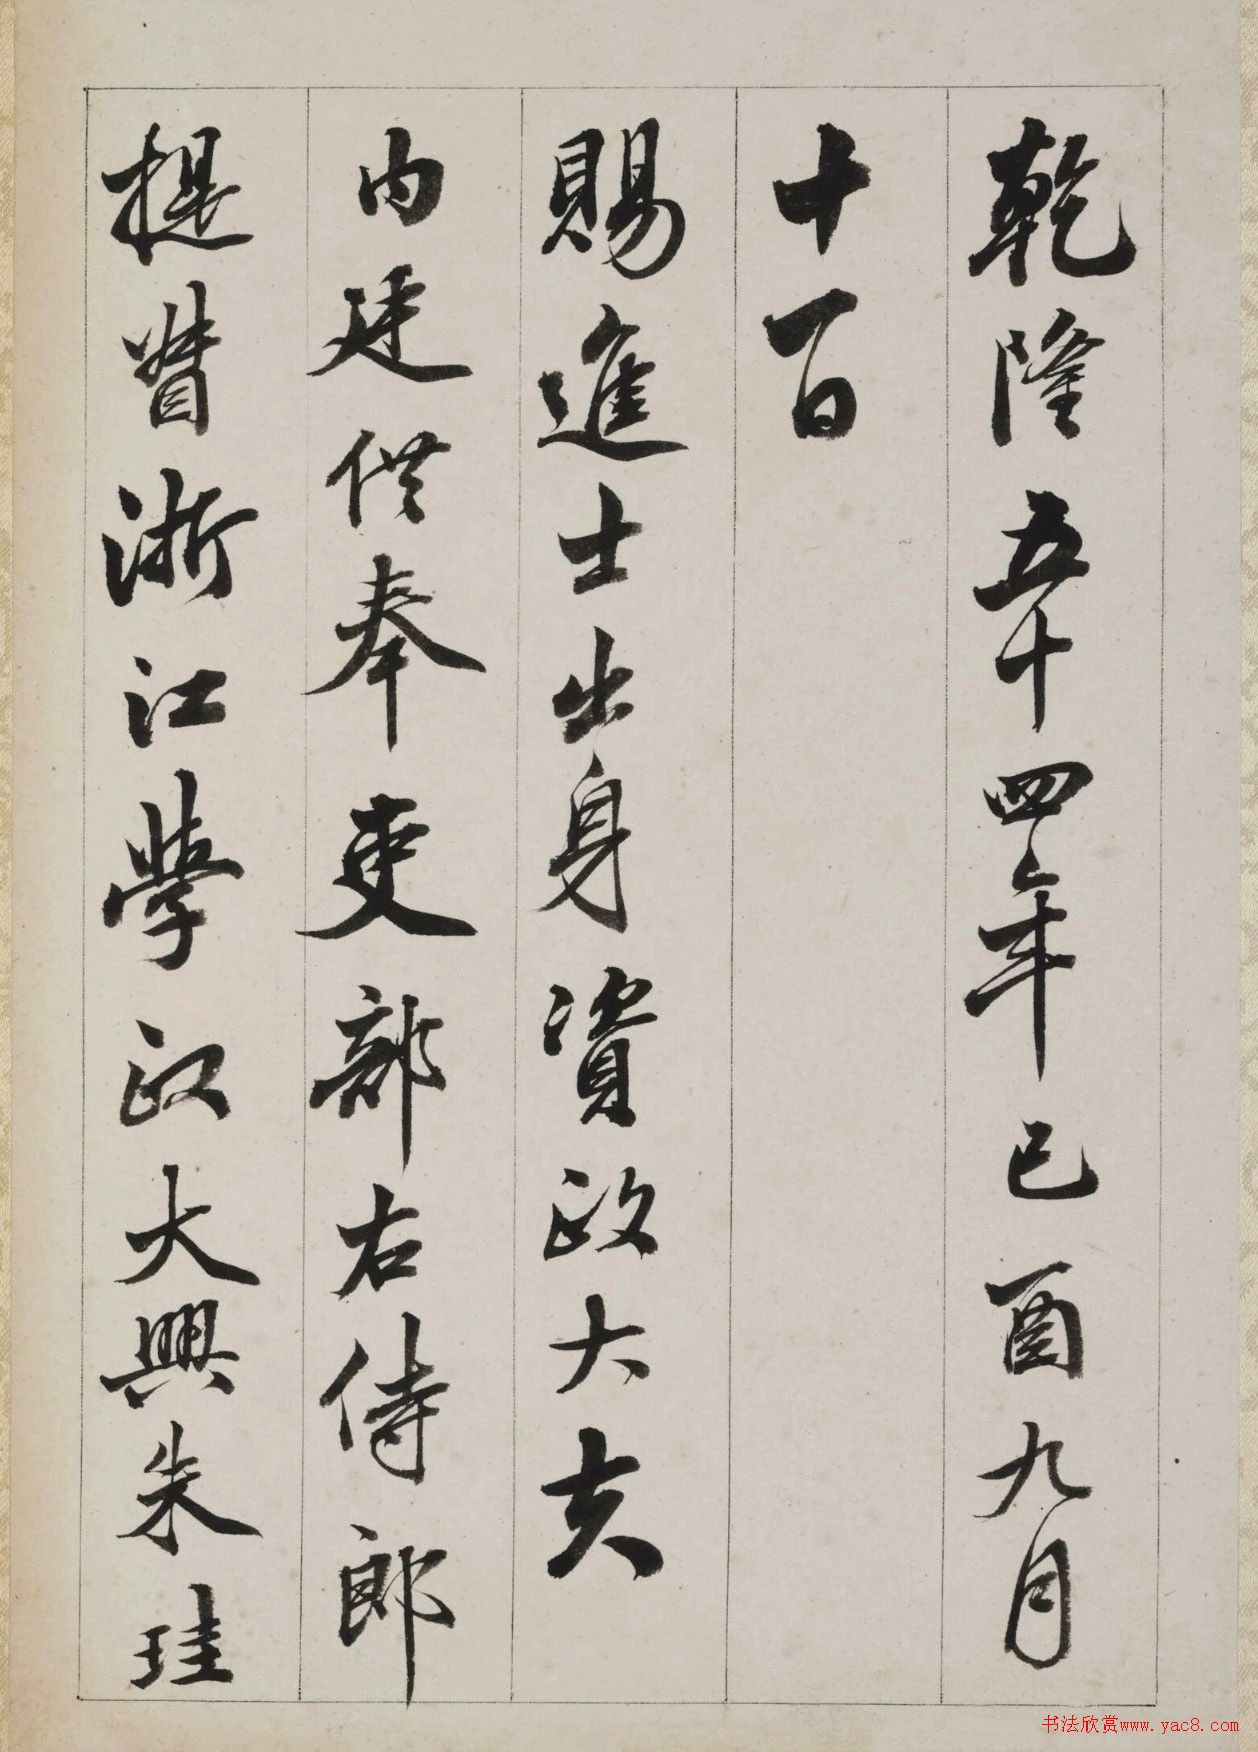 乾隆五十四年己酉九月
十一日
賜進士出身資政大夫
内廷供奉吏部右侍郎
提督浙江學政大興朱珪
书法欣赏www.yac8.com